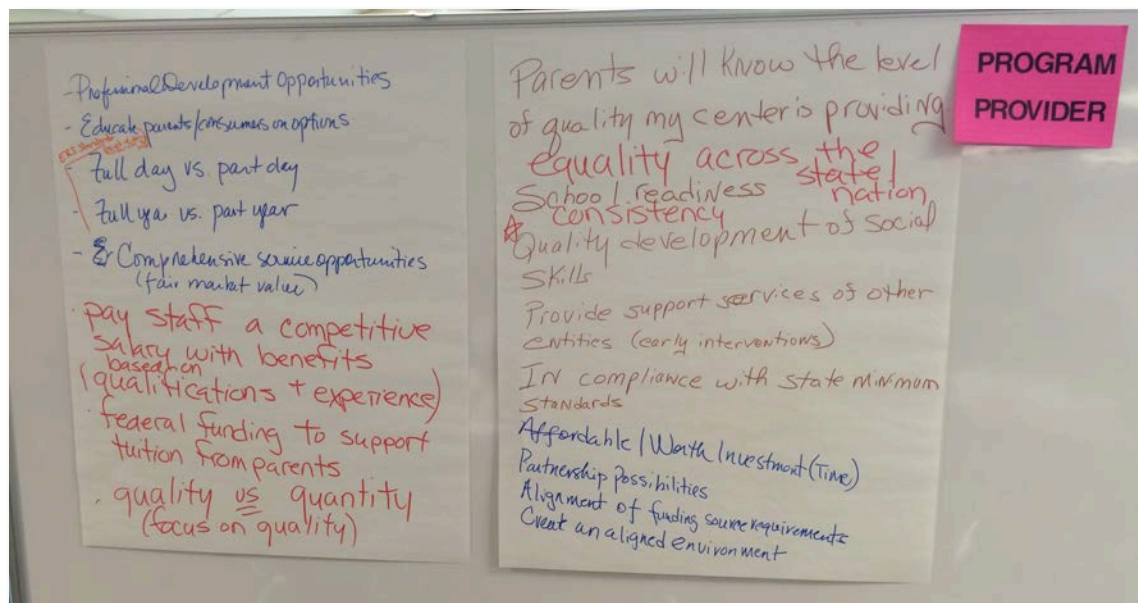 - Professional Development Opportunities
- Educate parents/consumers on options
- Full day vs. part day
- Full year vs. part year
- Comprehensive service opportunities
(fair market value)
· pay staff a competitive
salary with benefits
based on
(qualifications + experience)
· federal funding to support
tuition from parents
· quality vs quantity
(focus on quality)
Parents will know the level
of quality my center is providing
equality across the
state/
nation
School readiness
consistency
Quality development of social
skills
Provide support services of other
entities (early interventions)
In compliance with state minimum
standards
Affordable/Worth Investment (Time)
Partnership possibilities
Alignment of funding source requirements
Creat an aligned environment
PROGRAM
PROVIDER